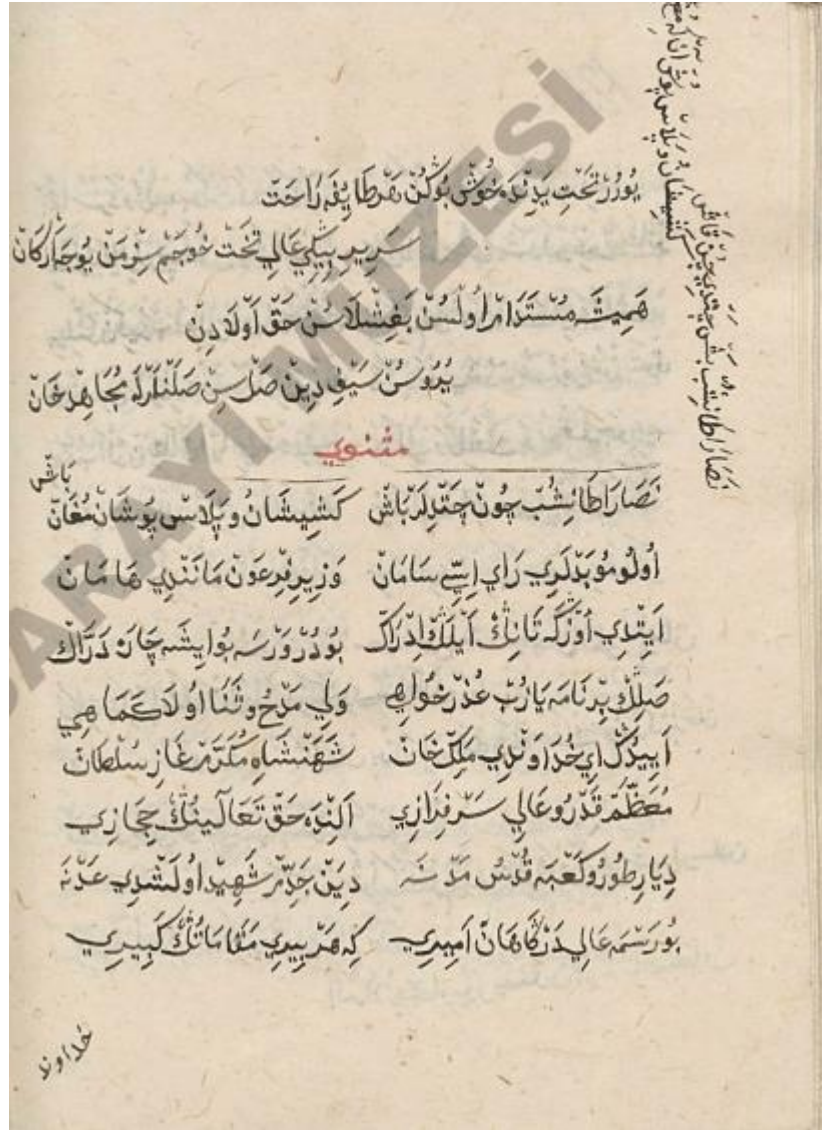 يُورُرْ تَحْتِ يَدِنْدَه خُوشْ بُوكُنْ هَرْ طَايِفَه رَاحَتْ
سَرِيرِ بِيكِي عَالِي تَخْتْ خُوجَمْ سِزْ مَنْ يُوجَارْكَانْ
هَمِيشَه مُسْتَدَامْ اُولْسُنْ بَغِشْلَاسُنْ حَقْ اَوْلَادِنْ
يُدُوسُنْ سَيْفِ دِينْ صَلْسِنْ صَلَنْلَرْلَه مُجَاهِدْ خَانْ
مثنوي
نَصَارَا طَانِشُبْ چُونْ چَتْدِلَرْ بَاشْ كَشِيشَانْ وپَلَاسْ پُوشَانْ مُغَانْ بَاشْ
اُولُو مُوبَدْلَرِي رَاي اِسِّي سَامَانْ وَزِيرِ فِرْعَوْنْ مَانَنْدِي هَامَانْ
اَيِتْدِي اُوزْكَه تَانِكْ اَيْلَكْ اِدْرَاكْ بُودُرْ وَرْسَه بُو ايشَه چَارَه دَرَّاكْ
صَلِكْ بِرْ نَامَه يَازُبْ عُذْرْ خُواهِي وَلِي مَدْحُ وثَنَا اُولَا كَمَا هِي
اَيِيدْكْ اي خُدَاوَنْدِي مَلِكْ خَانْ شَهَنْشَاهِ مُكَرَّمْ غَازِ سُلْطَانْ
مُعَظَّمْ قَدْرُ وعَالِي سَرْفِرَازِي اَلِنْدَه حَقْ تَعَالَينُكْ حِجَازِي
دِيَارِ طُورُ وكَعْبَه قُدْسُ مَدْنَه دِينْ جَدِّمْ شَهِيدْ اُولْشْدِي عَدْنَه
بُو رَسْمَه عَالِي دَرْكَاهَانْ اَمِيرِي كِه هَرْ بِيرِي مَقَامَاتُكْ كَبِيرِي
خداوند
نَصَارَا طَانِشِبْ بَشْ چَتْدِي چُنْ قَاشْ
كَشِيشَانْ وپَلَاسْ پُوشْ